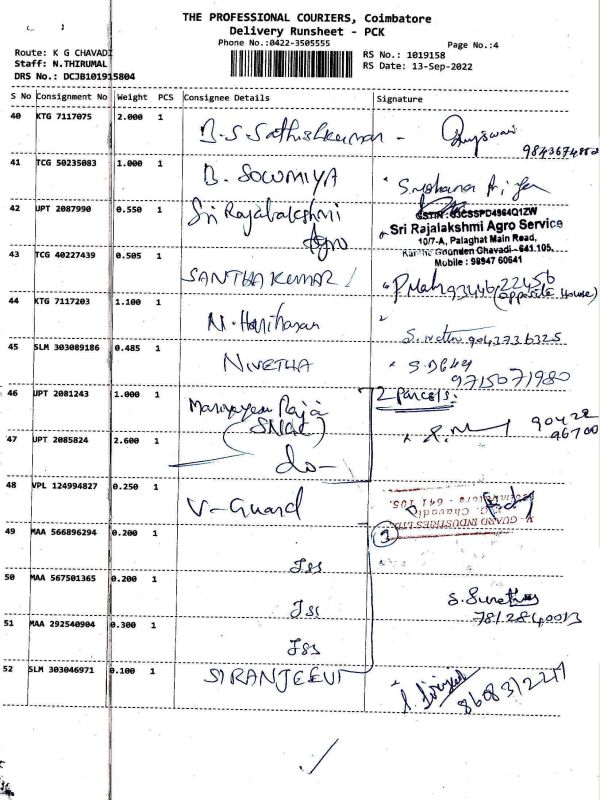 THE PROFESSIONAL COURIERS, Coimbatore
Delivery Runsheet - PCK
Phone No.:0422-3505555
Page No.:4
Route: K G CHAVADI
RS No.: 1019158
Staff: N.THIRUMAL
RS Date: 13-Sep-2022
DRS No.: DCJB101915804
S No Consignment No Weight PCS Consignee Details Signature
40 KTG 7117075 2.000 1
B.S.Sathishkumar -
9843674852
41 TCG 50235083 1.000 1
B. SOWMIYA
42 UPT 2087990 0.550 1
Sri Rajalakshmi
Agro
GSTIN : 33CSSPD4964Q1ZW
Sri Rajalakshmi Agro Service
10/7-A, Palaghat Main Road,
Karthe Gounden Chavadi - 641 105.
Mobile : 98947 60641
43 TCG 40227439 0.505 1
SANTHAKUMAR
93446 22456
(opposite House)
44 KTG 7117203 1.100 1
N. Hariharan
9043736325
45 SLM 303089186 0.485 1
NIVETHA
9715071980
46 UPT 2081243 1.000 1
Raja
(SNAC)
2 parcels:
47 UPT 2085824 2.600 1
do-
90422
96700
48 VPL 124994827 0.250 1
V-Guard
V- GUARD INDUSTRIES LTD.
K.G. Chavadi
Coimbatore - 641 105.
49 MAA 566896294 0.200 1
Jss
3
50 MAA 567501365 0.200 1
Jss
7812840013
51 MAA 292540904 0.300 1
Jss
52 SLM 303046971 0.100 1
SIRANJEEVI
8608312217